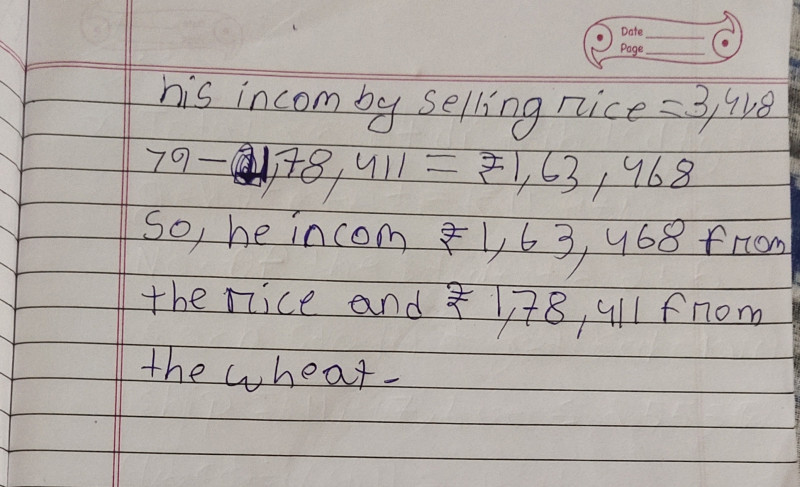 Date
Page
his incom by selling rice = 3,418
79 - 1,78,411 = ₹1,63,468
So, he incom ₹1,63,468 from
the rice and ₹ 1,78,411 from
the wheat.